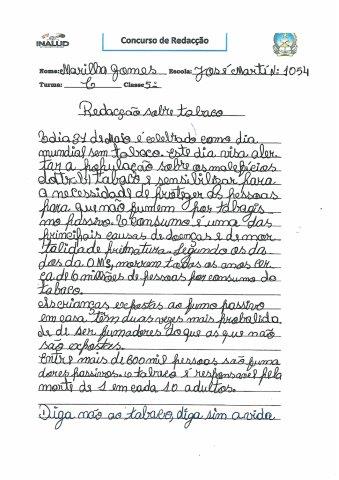 INALUD
Concurso de Redacção
Nome: Marilha Gomes Escola: José Martí Nº 1054
Turma: C Classe 5ª
Redacção sobre tabaco
O dia 31 de Maio é celebrado como dia
mundial sem tabaco. Este dia visa aler
tar a população sobre os malefícios
do tabaco e sensibilizar para
a necessidade de proteger as pessoas
para que não fumem por tabagis
mo passivo. O Consumo é uma das
principais causas de doenças e de mor
talidade prematura. Segundo os da
dos da O.M.S, morrem todos os anos cer
ca de 6 milhões de pessoas por consumo do
tabaco.
As crianças expostas ao fumo passivo
em casa têm duas vezes mais probalida
de de ser fumadores do que as que não
são expostas.
Entre mais de 600 mil pessoas são fuma
dores passivos. O tabaco é responsavel pela
morte de 1 em cada 10 adultos.
Diga não ao tabaco, diga sim a vida